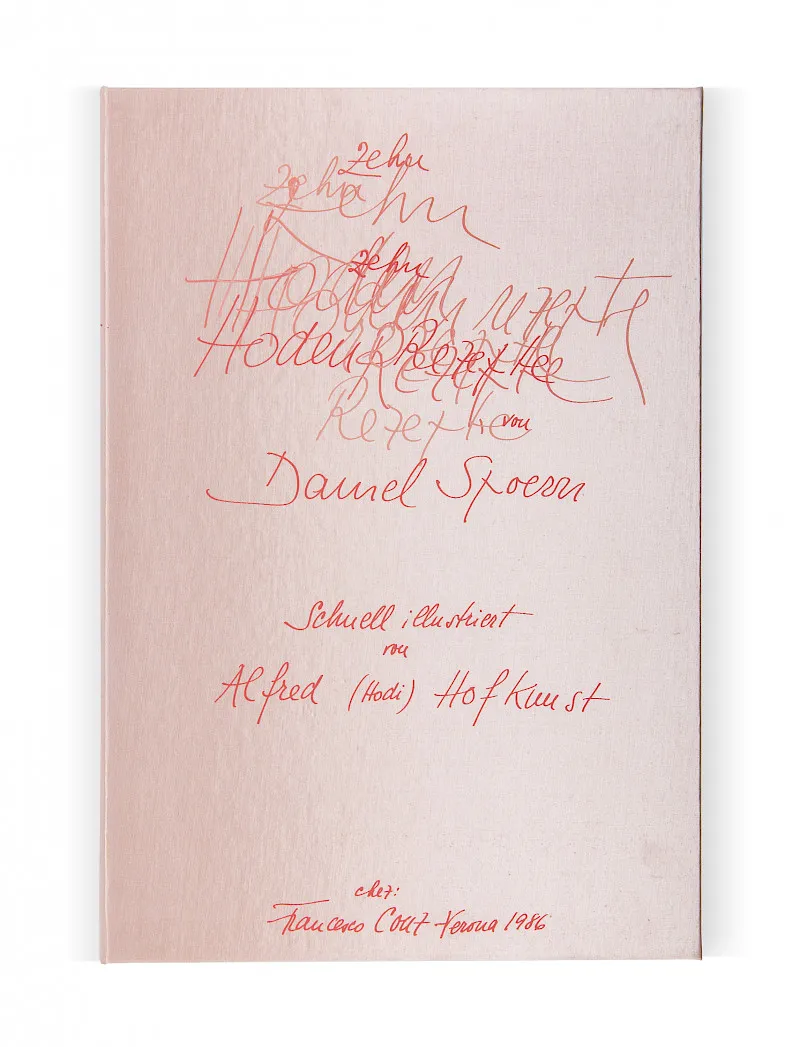 Zehn
Zehn
Zehn
Zehn
Hodenrezepte
Hoden Rezepte
Rezepte
von
Daniel Spoerri
Schnell illustriert
von
Alfred (Hodi) Hofkunst
chez:
Francesco Conz Verona 1986